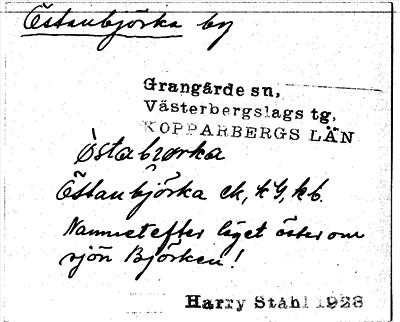 Östanbjörka by
Grangärde sn,
Västerbergslags tg,
KOPPARBERGS LÄN
östabjørka
Östanbjörka ek, kG, kb.
Namnet efter läget öster om
sjön Björken!
Harry Ståhl 1928